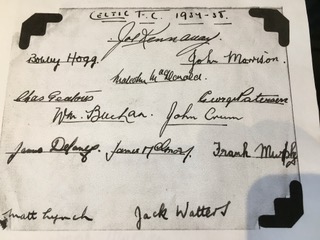 CELTIC F.C. 1937-38.
Joe Kennaway
Bobby Hogg John Morrison.
Malcolm MacDonald.
Chas Geatons George Paterson
Wm. Buchan. John Crum
James Delaney. James McGrory. Frank Murphy
Matt Lynch Jack Watters